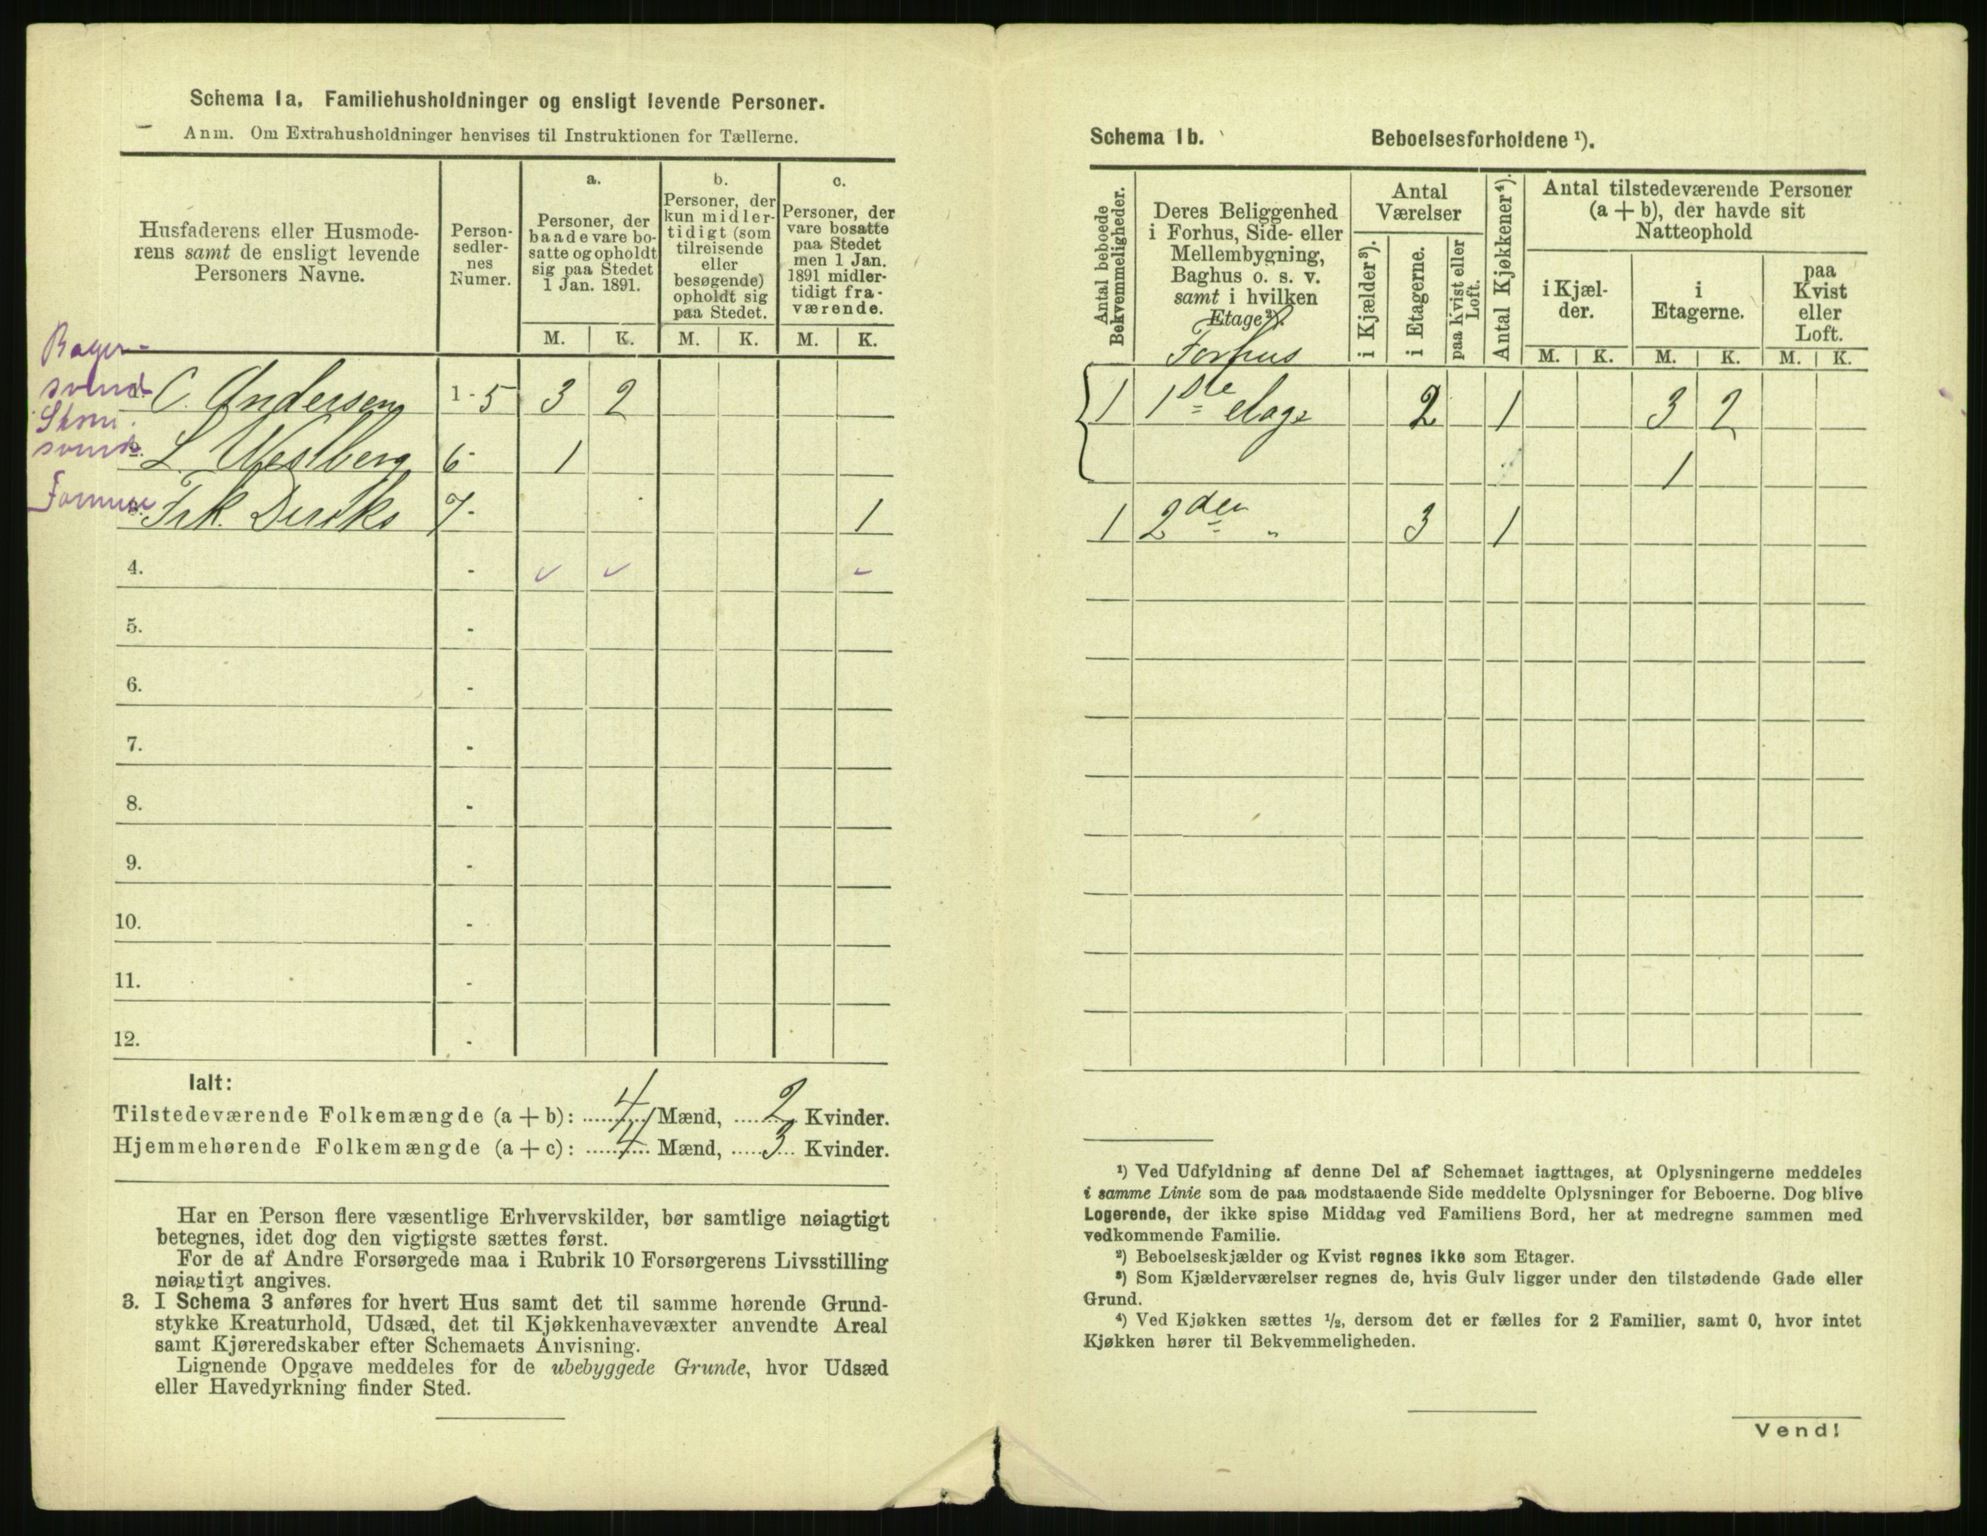 Schema 1a. Familiehusholdninger og ensligt levende Personer.
Anm. Om Extrahusholdninger henvises til Instruktionen for Tællerne.
Husfaderens eller Husmode-
rens samt de ensligt levende
Personers Navne.
Person-
sedler-
nes
Numer.
a.
Personer, der
baade vare bo-
satte og opholdt
sig paa Stedet
1 Jan. 1891.
b.
Personer, der
kun midler-
tidigt (som
tilreisende
eller
besøgende)
opholdt sig
paa Stedet.
c.
Personer, der
vare bosatte
paa Stedet
men 1 Jan.
1891 midler-
tidigt fra-
værende.
M. K. M. K. M. K.
Bager-
svend
C. Andersen 1 - 5 3 2
Skom.
svend
L. Westberg 6 - 1
Frk. Deriks 7 - 1
4. -
5. -
6. -
7. -
8. -
9. -
10. -
11. -
12. -
Ialt:
Tilstedeværende Folkemængde (a + b): 4 Mænd, 2 Kvinder.
Hjemmehørende Folkemængde (a + c): 4 Mænd, 3 Kvinder.
Har en Person flere væsentlige Erhvervskilder, bør samtlige nøiagtigt
betegnes, idet dog den vigtigste sættes først.
For de af Andre Forsørgede maa i Rubrik 10 Forsørgerens Livsstilling
nøiagtigt angives.
3. I Schema 3 anføres for hvert Hus samt det til samme hørende Grund-
stykke Kreaturhold, Udsæd, det til Kjøkkenhavevæxter anvendte Areal
samt Kjøreredskaber efter Schemaets Anvisning.
Lignende Opgave meddeles for de ubebyggede Grunde, hvor Udsæd
eller Havedyrkning finder Sted.
Schema 1b. Beboelsesforholdene ¹).
Antal beboede
Bekvemmeligheder.
Deres Beliggenhed
i Forhus, Side- eller
Mellembygning,
Baghus o. s. v.
samt i hvilken
Etage²).
Antal
Værelser
i Kjælder³).
i Etagerne.
paa Kvist eller
Loft.
Antal Kjøkkener⁴).
Antal tilstedeværende Personer
(a + b), der havde sit
Natteophold
i Kjæl-
der.
i
Etagerne.
paa
Kvist
eller
Loft.
M. K. M. K. M. K.
Forhus
1 1ste etage 2 1 3 2
1
1 2den " 3 1
¹) Ved Udfyldning af denne Del af Schemaet iagttages, at Oplysningerne meddeles
i samme Linie som de paa modstaaende Side meddelte Oplysninger for Beboerne. Dog blive
Logerende, der ikke spise Middag ved Familiens Bord, her at medregne sammen med
vedkommende Familie.
²) Beboelseskjælder og Kvist regnes ikke som Etager.
³) Som Kjælderværelser regnes de, hvis Gulv ligger under den tilstødende Gade eller
Grund.
⁴) Ved Kjøkken sættes ½, dersom det er fælles for 2 Familier, samt 0, hvor intet
Kjøkken hører til Bekvemmeligheden.
Vend!